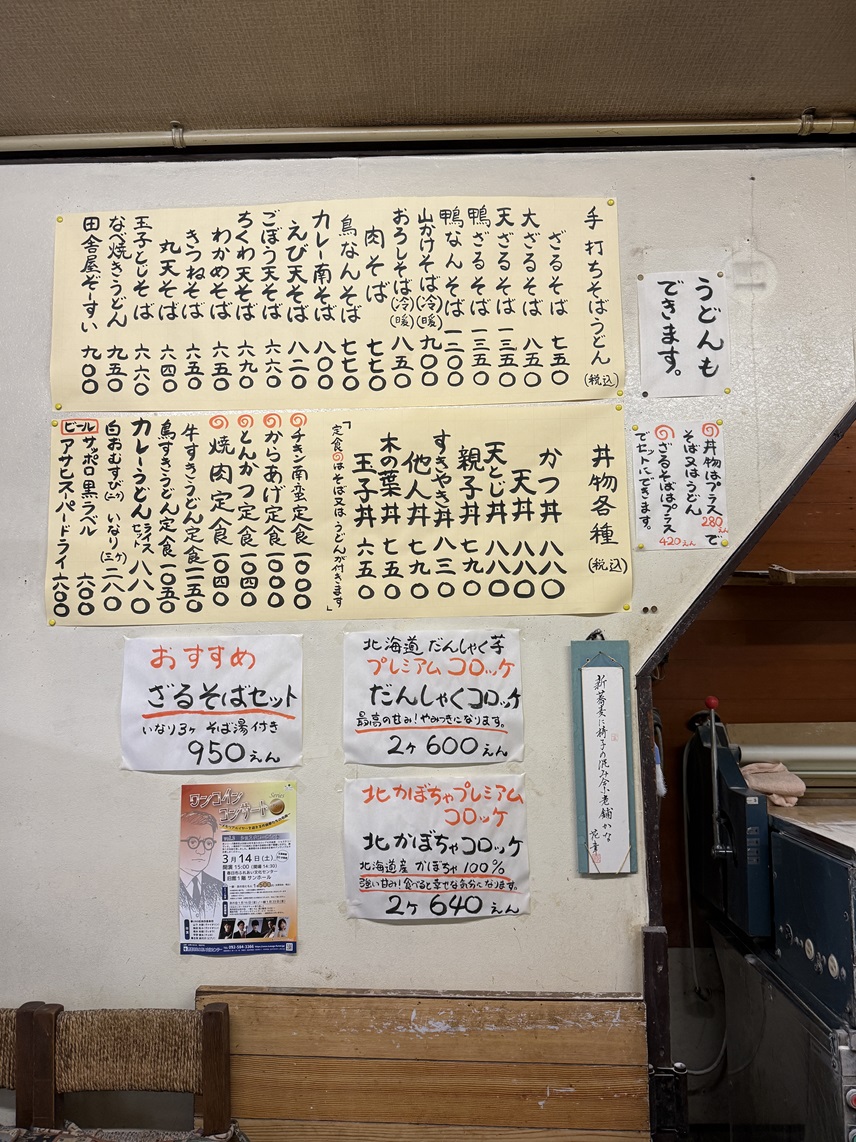 手打ちそばうどん(税込)
ざるそば 七五〇
大ざるそば 八五〇
天ざるそば 一三五〇
鴨ざるそば 一三五〇
鴨なんそば 一二〇〇
山かけそば(冷)(暖) 九〇〇
おろしそば(冷)(暖) 八五〇
肉そば 七七〇
鳥なんそば 七七〇
カレー南そば 八〇〇
えび天そば 八二〇
ごぼう天そば 六六〇
ちくわ天そば 六九〇
わかめそば 六五〇
きつねそば 六五〇
丸天そば 六四〇
玉子とじそば 六六〇
なべ焼きうどん 九五〇
田舎屋ぞーすい 九〇〇
うどんも
できます。
丼物各種(税込)
かつ丼 八八〇
天丼 八八〇
天とじ丼 八八〇
親子丼 七九〇
すきやき丼 八三〇
他人丼 七九〇
木の葉丼 七五〇
玉子丼 六五〇
「定食はそば又はうどんが付きます」
チキン南蛮定食 一〇〇〇
からあげ定食 一〇〇〇
とんかつ定食 一〇四〇
焼肉定食 一〇四〇
牛すきうどん定食 一一五〇
鳥すきうどん定食 一〇五〇
カレーうどんライスセット 八八〇
白おむすび(二ケ) いなり(三ケ) 二八〇
ビール
サッポロ黒ラベル 六〇〇
アサヒスーパードライ 六〇〇
丼物はプラス280えんで
そば又はうどん
ざるそばはプラス420えん
でセットにできます。
おすすめ
ざるそばセット
いなり3ヶ そば湯付き
950えん
北海道 だんしゃく芋
プレミアムコロッケ
だんしゃくコロッケ
最高の甘み!やみつきになります。
2ヶ 600えん
北かぼちゃプレミアム
コロッケ
北かぼちゃコロッケ
北海道産 かぼちゃ 100%
強い甘み!食べると幸せな気分になります。
2ヶ 640えん
新蕎麦に椅子の混み合ふ老舗かな
ワンコイン
コンサート
Series
3月14日(土)
開演 15:00 (開場 14:30)
春日市ふれあい文化センター
旧館1階 サンホール
500